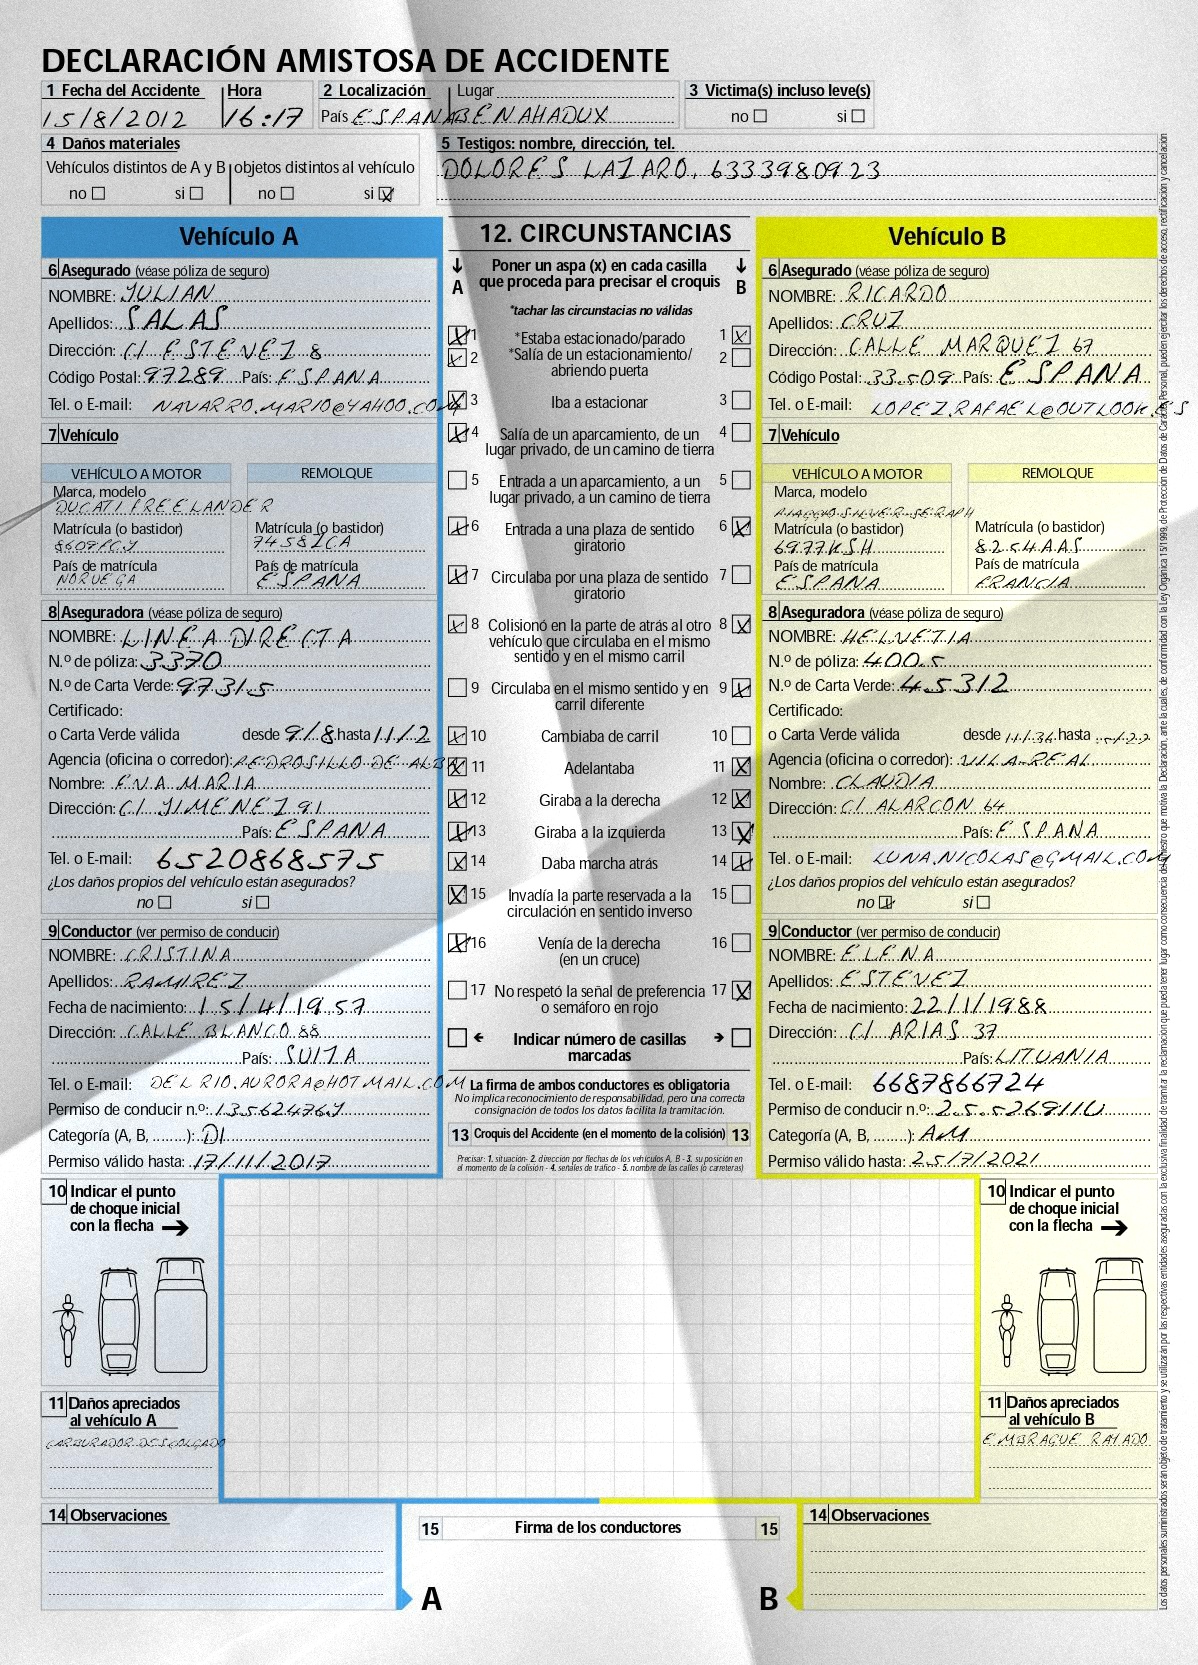 DECLARACIÓN AMISTOSA DE ACCIDENTE
1 Fecha del Accidente Hora 2 Localización Lugar 3 Victima(s) incluso leve(s)
15/8/2012 16:17 País ESPANA BENAHADUX no si
4 Daños materiales 5 Testigos: nombre, dirección, tel.
Vehículos distintos de A y B objetos distintos al vehículo DOLORES LAZARO, 6333980923
no si no si X
Vehículo A
6 Asegurado (véase póliza de seguro)
NOMBRE: JULIAN
Apellidos: SALAS
Dirección: C/ ESTEVEZ 8
Código Postal: 97289 País: ESPANA
Tel. o E-mail: NAVARRO.MARIO@YAHOO.COM
7 Vehículo
VEHÍCULO A MOTOR REMOLQUE
Marca, modelo
DUCATI FREELANDER
Matrícula (o bastidor) Matrícula (o bastidor)
8609PCY 7458ZCA
País de matrícula País de matrícula
NORUEGA ESPANA
8 Aseguradora (véase póliza de seguro)
NOMBRE: LINEA DIRECTA
N.º de póliza: 3370
N.º de Carta Verde: 97315
Certificado:
o Carta Verde válida desde 9/8 hasta 11/2
Agencia (oficina o corredor): PEDROSILLO DE ALBA
Nombre: EVA MARIA
Dirección: C/ JIMENEZ 91
País: ESPANA
Tel. o E-mail: 6520868575
¿Los daños propios del vehículo están asegurados?
no si
9 Conductor (ver permiso de conducir)
NOMBRE: CRISTINA
Apellidos: RAMIREZ
Fecha de nacimiento: 15/4/1957
Dirección: CALLE BLANCO 88
País: SUIZA
Tel. o E-mail: DELRIO.AURORA@HOTMAIL.COM
Permiso de conducir n.º: 13562476J
Categoría (A, B, ........): D1
Permiso válido hasta: 17/11/2017
12. CIRCUNSTANCIAS
Poner un aspa (x) en cada casilla
A que proceda para precisar el croquis B
*tachar las circunstacias no válidas
X 1 *Estaba estacionado/parado 1 X
X 2 *Salía de un estacionamiento/ 2
abriendo puerta
X 3 Iba a estacionar 3
X 4 Salía de un aparcamiento, de un 4
lugar privado, de un camino de tierra
5 Entrada a un aparcamiento, a un 5
lugar privado, a un camino de tierra
X 6 Entrada a una plaza de sentido 6 X
giratorio
X 7 Circulaba por una plaza de sentido 7
giratorio
X 8 Colisionó en la parte de atrás al otro 8 X
vehículo que circulaba en el mismo
sentido y en el mismo carril
9 Circulaba en el mismo sentido y en 9 X
carril diferente
X 10 Cambiaba de carril 10
X 11 Adelantaba 11 X
X 12 Giraba a la derecha 12 X
X 13 Giraba a la izquierda 13 X
X 14 Daba marcha atrás 14 X
X 15 Invadía la parte reservada a la 15
circulación en sentido inverso
X 16 Venía de la derecha 16
(en un cruce)
17 No respetó la señal de preferencia 17 X
o semáforo en rojo
Indicar número de casillas
marcadas
La firma de ambos conductores es obligatoria
No implica reconocimiento de responsabilidad, pero una correcta
consignación de todos los datos facilita la tramitación.
13 Croquis del Accidente (en el momento de la colisión) 13
Precisar: 1. situación- 2. dirección por flechas de los vehículos A, B - 3. su posición en
el momento de la colisión - 4. señales de tráfico - 5. nombre de las calles (o carreteras)
Vehículo B
6 Asegurado (véase póliza de seguro)
NOMBRE: RICARDO
Apellidos: CRUZ
Dirección: CALLE MARQUEZ 67
Código Postal: 33509 País: ESPANA
Tel. o E-mail: LOPEZ.RAFAEL@OUTLOOK.ES
7 Vehículo
VEHÍCULO A MOTOR REMOLQUE
Marca, modelo
PIAGGIO SILVER-SERAPH
Matrícula (o bastidor) Matrícula (o bastidor)
6977KSH 8254AAS
País de matrícula País de matrícula
ESPANA FRANCIA
8 Aseguradora (véase póliza de seguro)
NOMBRE: HELVETIA
N.º de póliza: 4005
N.º de Carta Verde: 45312
Certificado:
o Carta Verde válida desde hasta
Agencia (oficina o corredor): VILA-REAL
Nombre: CLAUDIA
Dirección: C/ ALARCON 64
País: ESPANA
Tel. o E-mail: LUNA.NICOLAS@GMAIL.COM
¿Los daños propios del vehículo están asegurados?
no X si
9 Conductor (ver permiso de conducir)
NOMBRE: ELENA
Apellidos: ESTEVEZ
Fecha de nacimiento: 22/1/1988
Dirección: C/ ARIAS 37
País: LITUANIA
Tel. o E-mail: 6687866724
Permiso de conducir n.º: 25526911U
Categoría (A, B, ........): AM
Permiso válido hasta: 25/7/2021
10 Indicar el punto
de choque inicial
con la flecha
11 Daños apreciados
al vehículo A
CARBURADOR DESCOLGADO
10 Indicar el punto
de choque inicial
con la flecha
11 Daños apreciados
al vehículo B
EMBRAGUE RAYADO
14 Observaciones
15 Firma de los conductores 15
A B
14 Observaciones